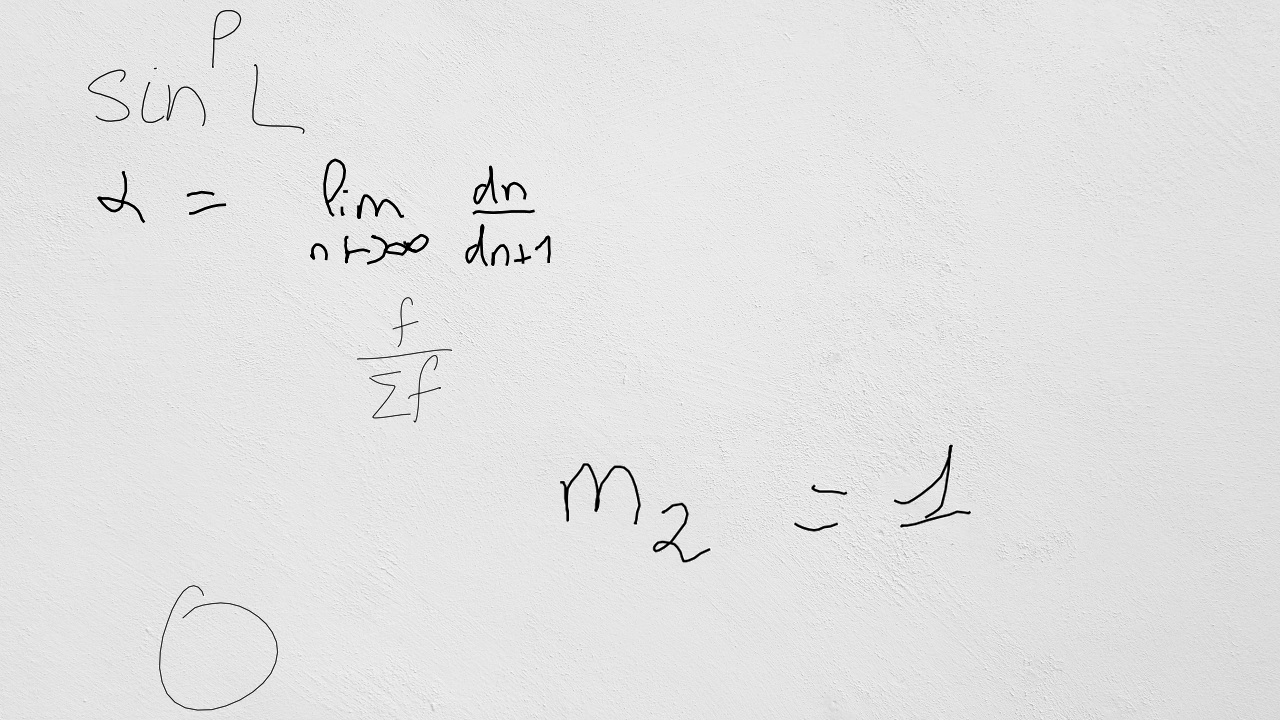 sin^P L
α = lim_{n→∞} \frac{dn}{dn+1}
\frac{f}{Σf}
m_2 = 1
0